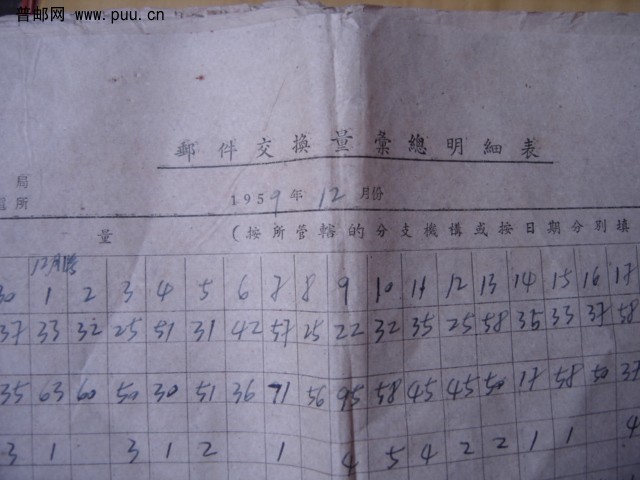 普邮网 www.puu.cn
郵件交換量彙總明細表
局
所
1959年12月份
量 (按所管轄的分支機構或按日期分別填
12月
30 1 2 3 4 5 6 7 8 9 10 11 12 13 14 15 16 17
37 33 32 25 51 31 42 57 25 22 32 35 25 58 35 33 37 58
35 63 60 50 30 51 36 71 56 95 58 45 45 50 17 58 50 37
3 1 3 1 2 1 4 5 4 2 2 1 1 4